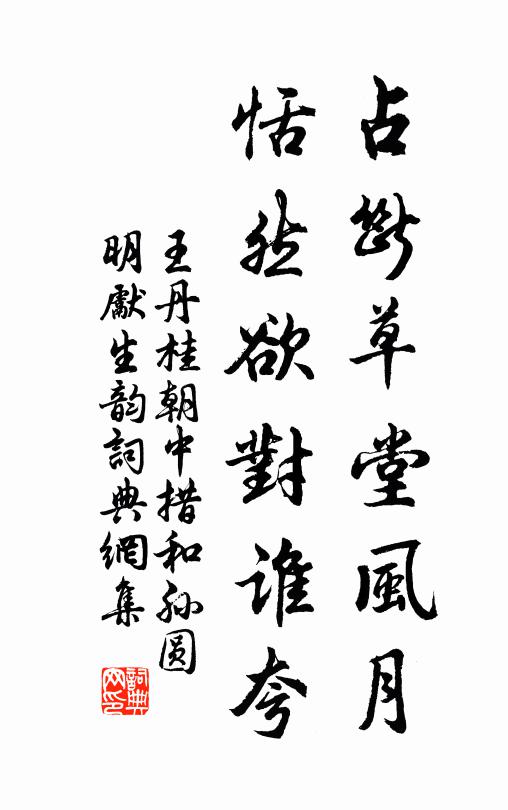 占斷草堂風月
恬然欲對誰夸
王丹桂朝中措和孙圆
明獻生韵詞典網集
詞典
网印